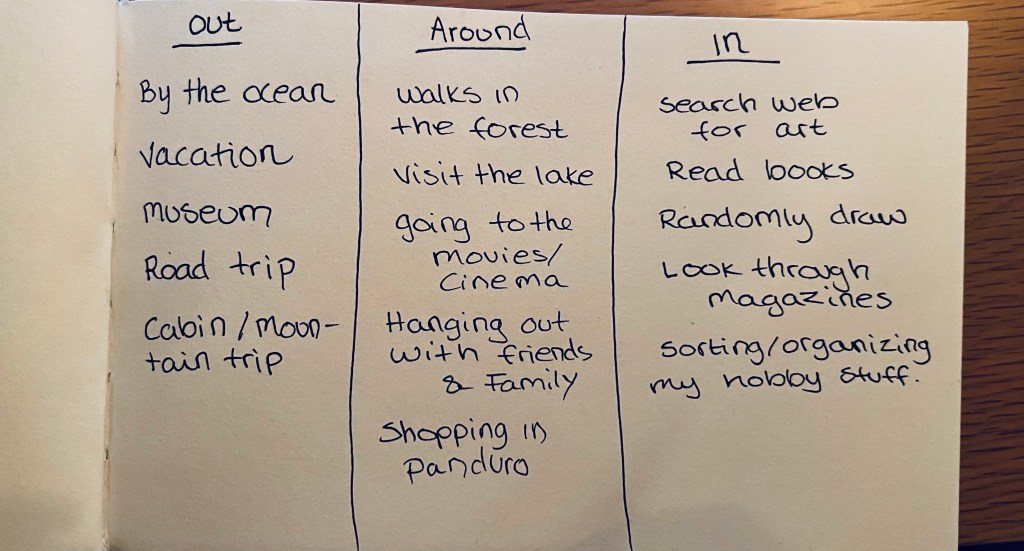 out
By the ocean
vacation
museum
Road trip
Cabin/moun-
tain trip
Around
walks in
the forest
visit the lake
going to the
movies/
cinema
Hanging out
with friends
& Family
Shopping in
panduro
in
search web
for art
Read books
Randomly draw
Look through
magazines
sorting/organizing
my hobby stuff.